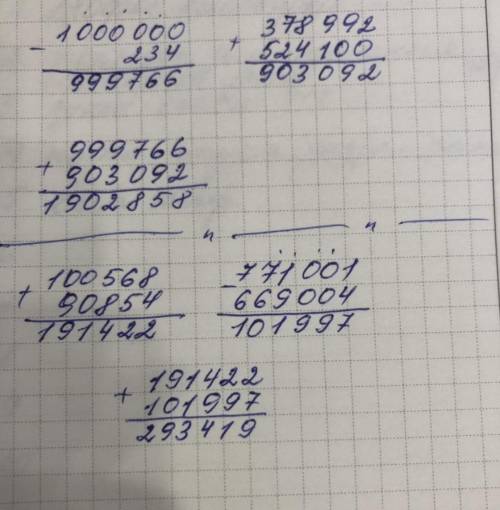 - 1000000
234
999766
+ 378992
524100
903092
+ 999766
903092
1902858
+ 100568
90854
191422
- 771001
669004
101997
+ 191422
101997
293419